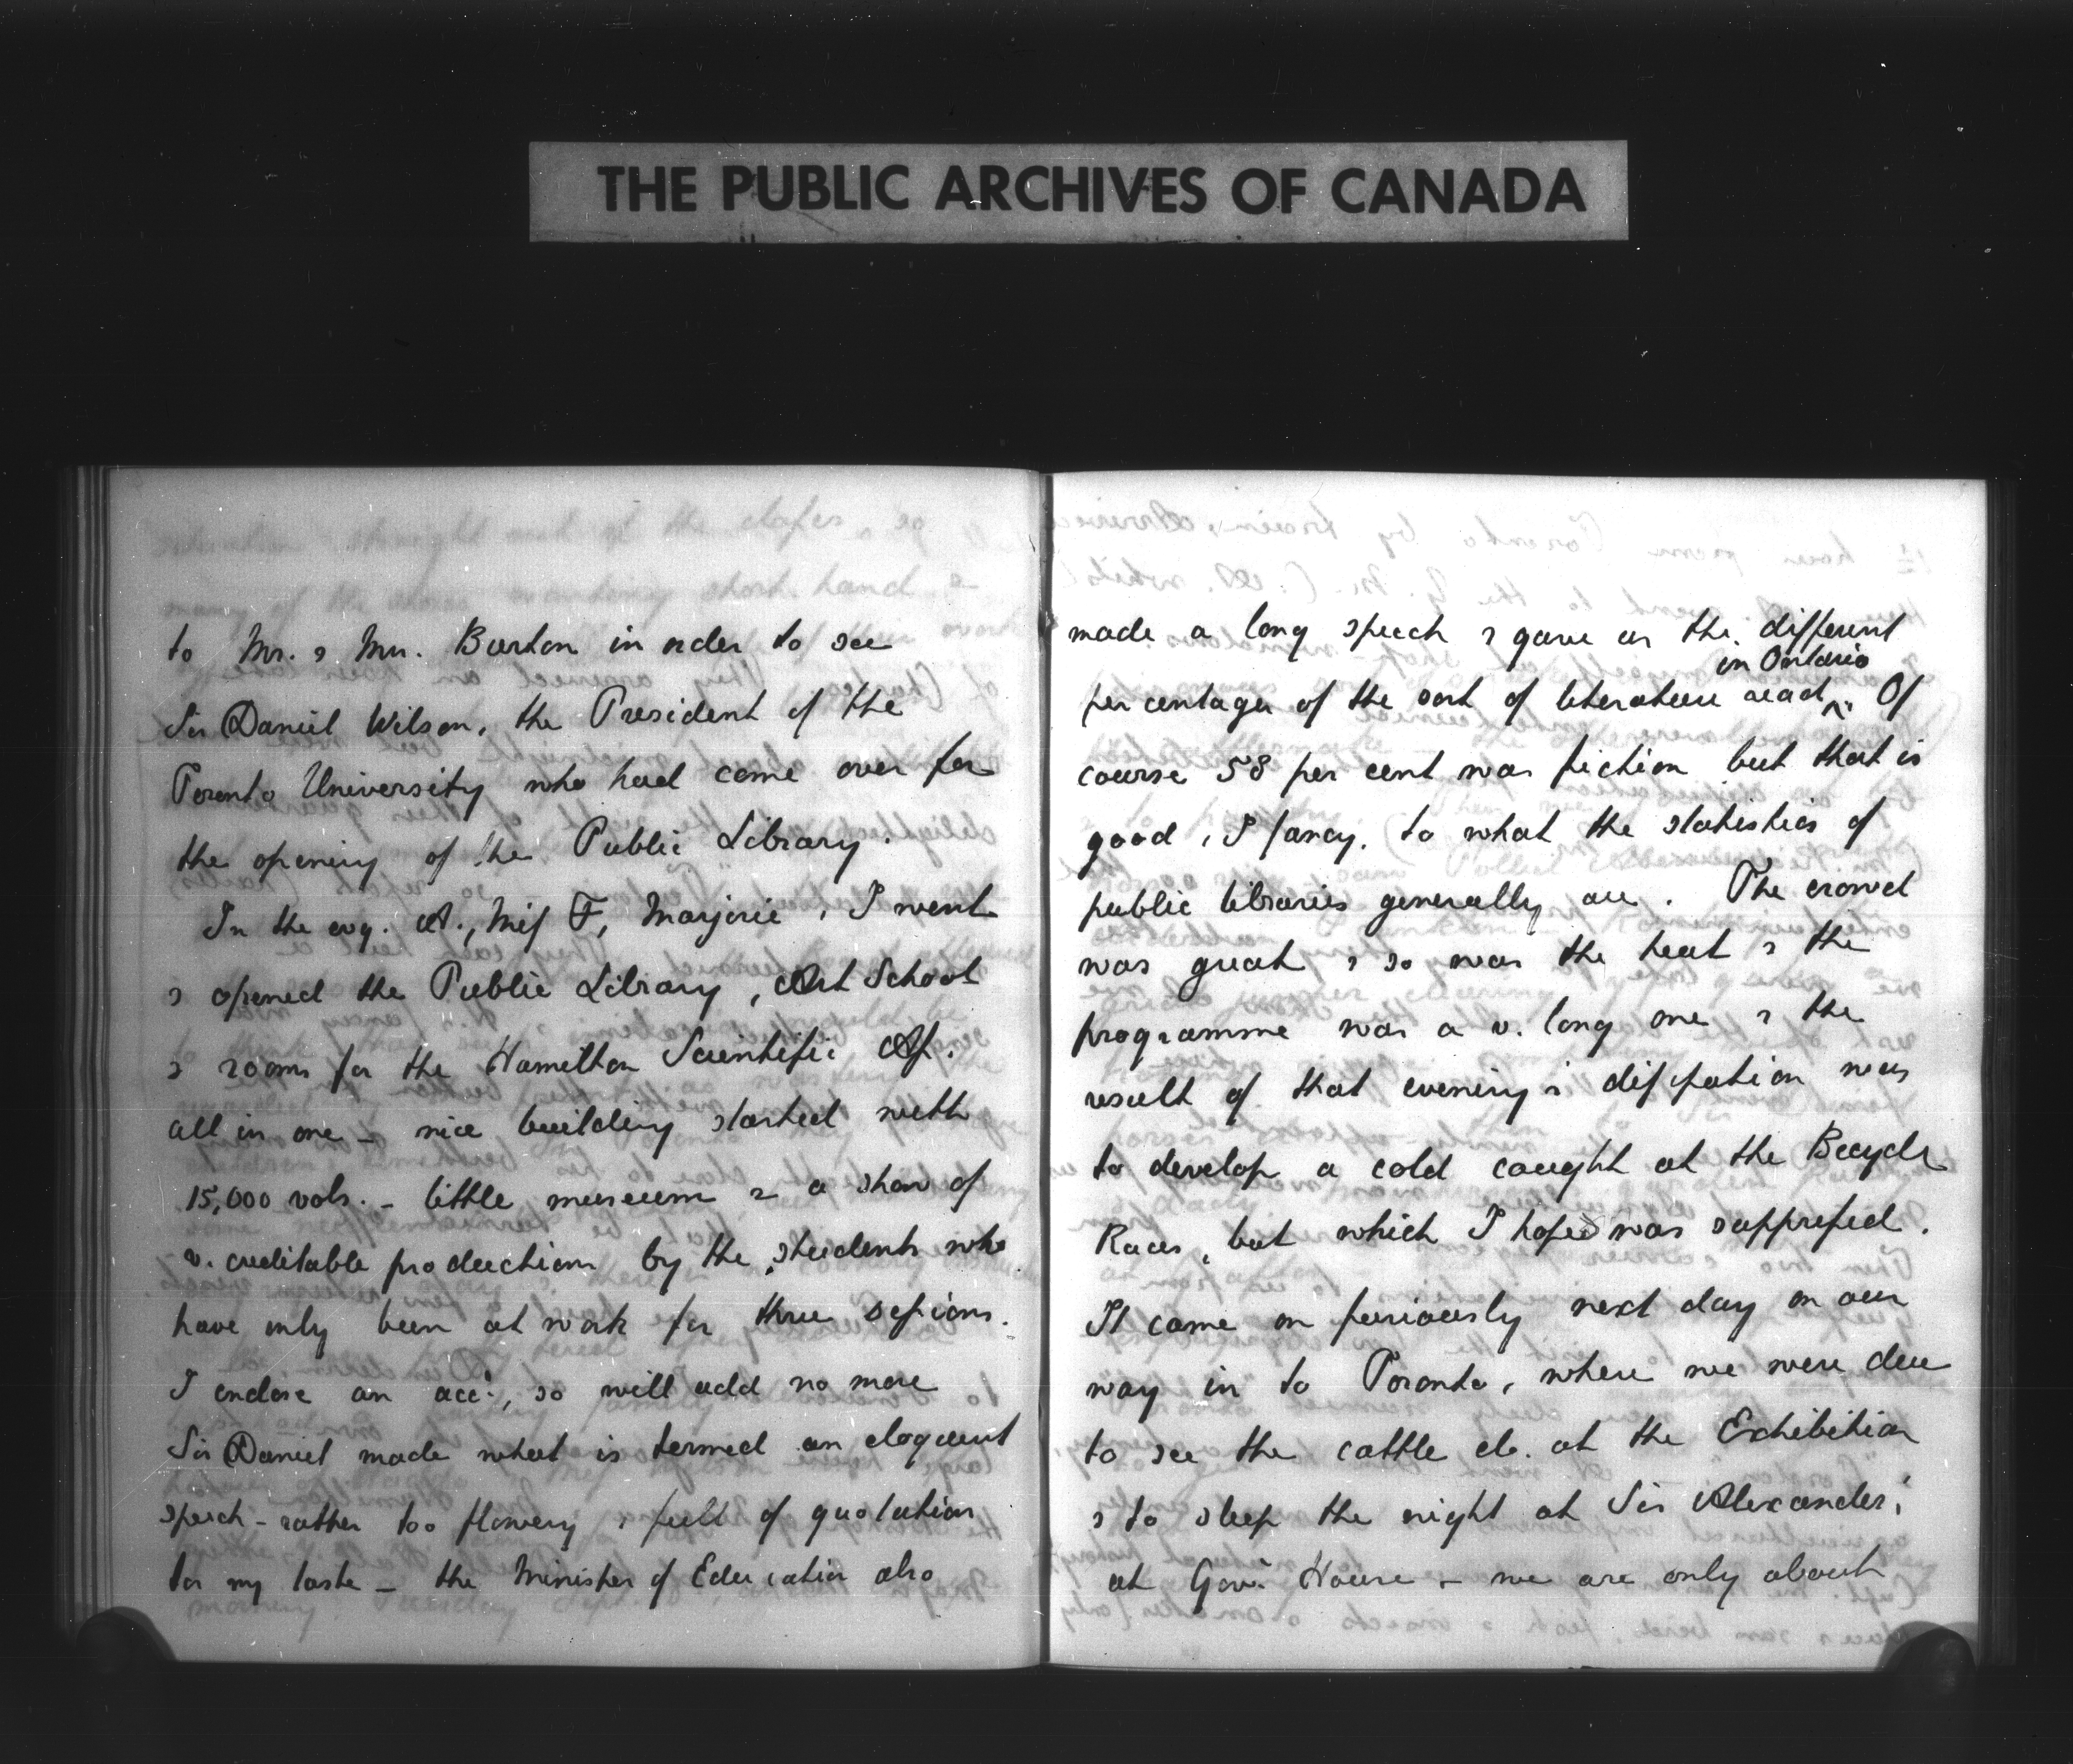 THE PUBLIC ARCHIVES OF CANADA
to Mr. & Mrs. Burton in order to see
Sir Daniel Wilson, the President of the
Toronto University who had come over for
the opening of the Public Library.
In the evg. A., Miss F, Marjorie & I went
& opened the Public Library, Art School
& rooms for the Hamilton Scientific Ass.
all in one - nice building started with
15,000 vols. - little museum & a show of
v. creditable productions by the students who
have only been at work for three sessions.
I enclose an acct., so will add no more
Sir Daniel made what is termed an eloquent
speech - rather too flowery & full of quotation
for my taste - the Minister of Education also
made a long speech & gave us the different
in Ontario
per centages of the sort of literature read ^. Of
course 58 per cent was fiction but that is
good, I fancy, to what the statistics of
public libraries generally are. The crowd
was great & so was the heat & the
programme was a v. long one & the
result of that evening's dissipation was
to develop a cold caught at the Bicycle
Races, but which I hoped was suppressed.
It came on furiously next day on our
way in to Toronto, where we were due
to see the cattle etc. at the Exhibition
& to sleep the night at Sir Alexander's
at Govt. House - we are only about